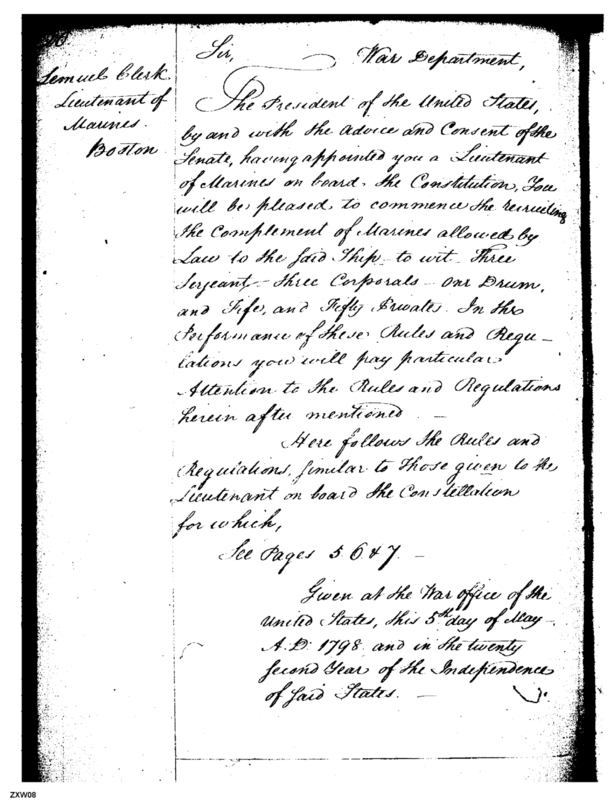 Lemuel Clerk
Lieutenant of
Marines.
Boston
Sir, War Department,
The President of the United States,
by and with the Advice and Consent of the
Senate, having appointed you a Lieutenant
of Marines on board the Constitution, You
will be pleased to commence the recruiting
the Complement of Marines allowed by
Law to the said Ship - to wit. Three
Serjeant - three Corporals - one Drum,
and Fife, and Fifty Privates. In the
Performance of these Rules and Regu-
lations you will pay particular
Attention to the Rules and Regulations
herein after mentioned -
Here follows the Rules and
Regulations, similar to those given to the
Lieutenant on board the Constellation
for which,
See Pages 5. 6 & 7. -
Given at the War office of the
United States, this 5th day of May
A.D. 1798 and in the twenty
second Year of the Independence
of said States. -
ZXW08